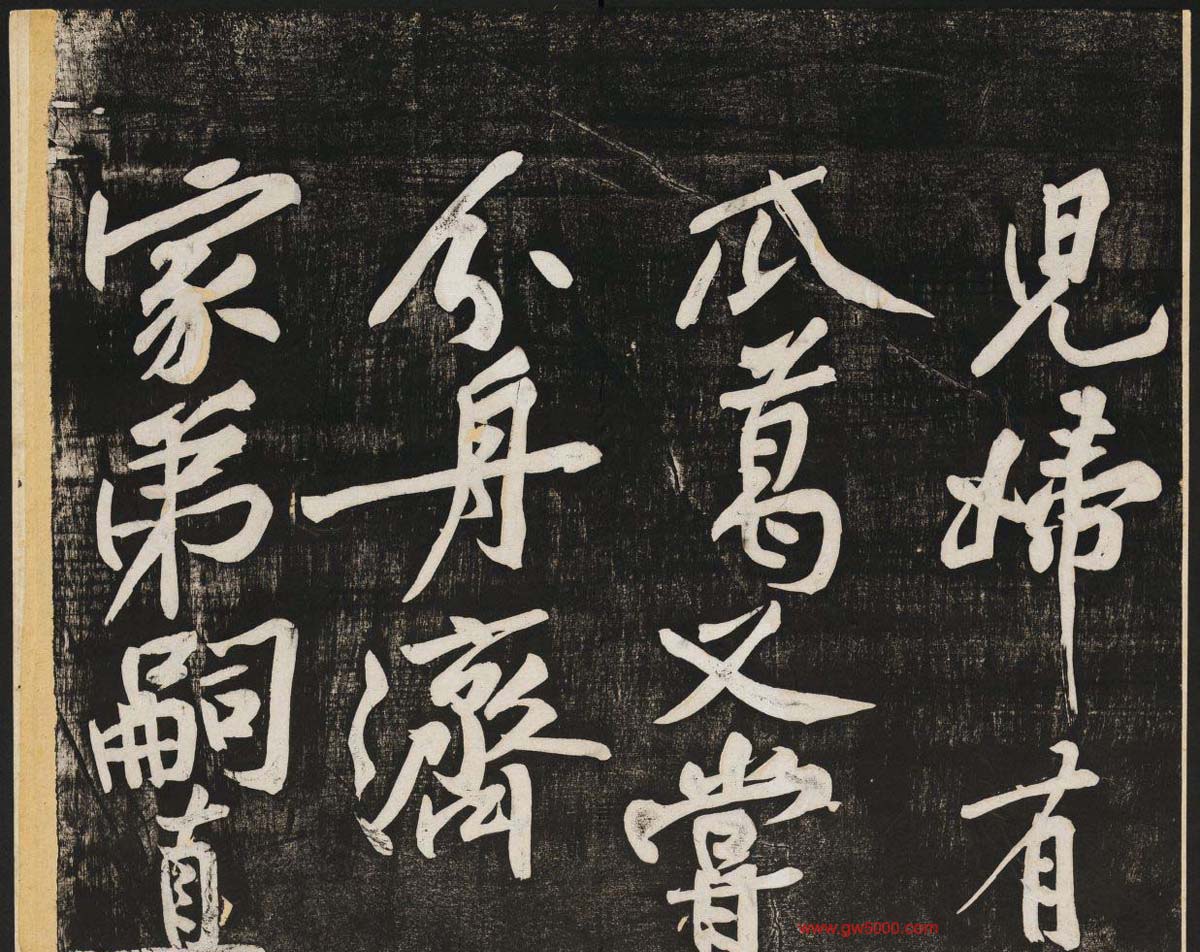 兒婦有
瓜葛又嘗
分舟濟
家弟嗣直
www.gw5000.com